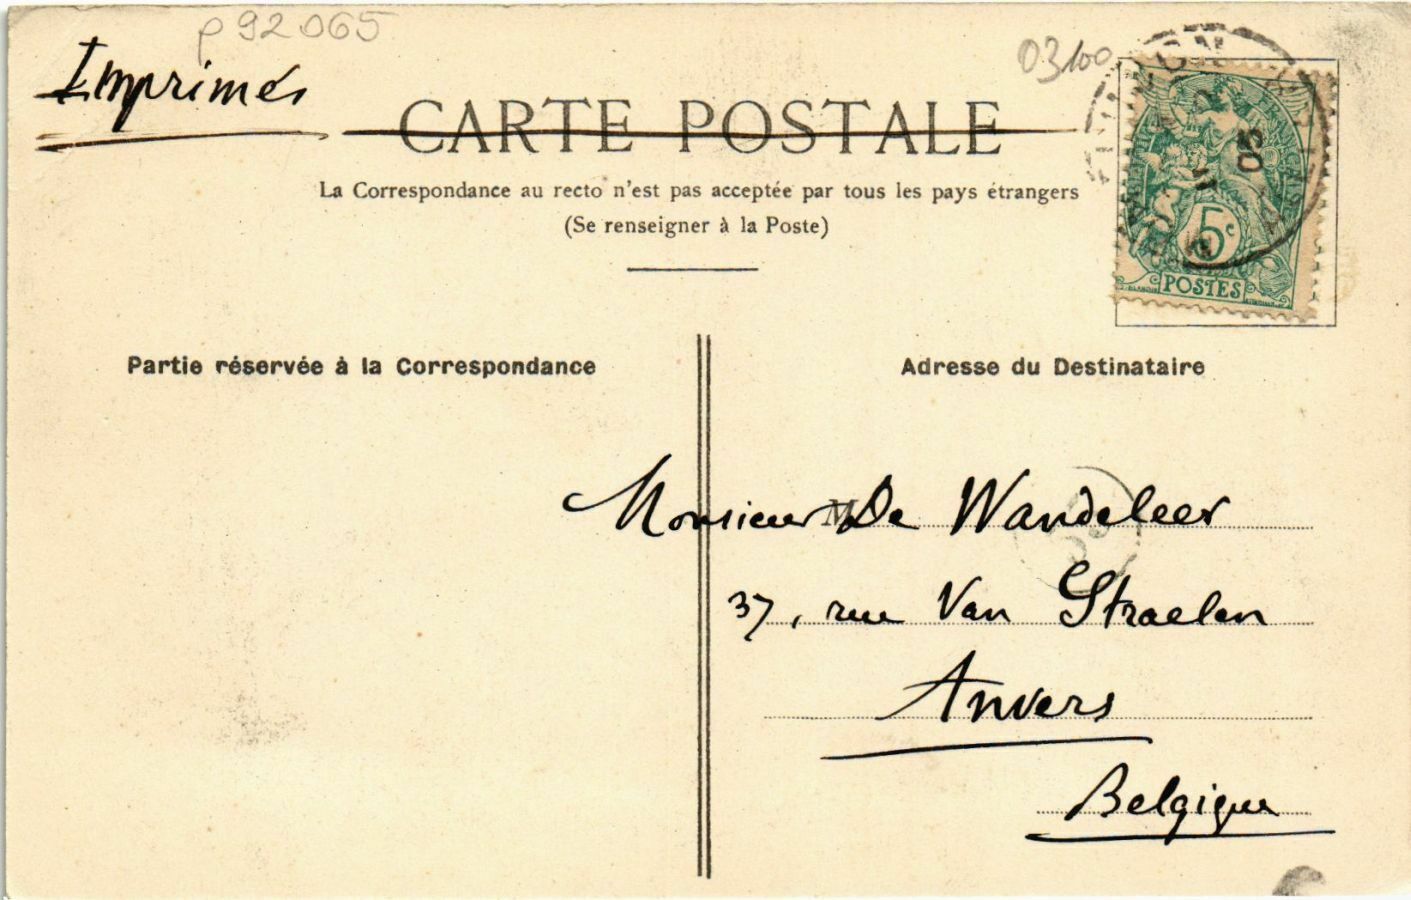 p 92065
Imprimés
03100
CARTE POSTALE
La Correspondance au recto n'est pas acceptée par tous les pays étrangers
(Se renseigner à la Poste)
05
5c
POSTES
Partie réservée à la Correspondance
Adresse du Destinataire
Monsieur M De Wandeleer
37, rue Van Straelen
Anvers
Belgique